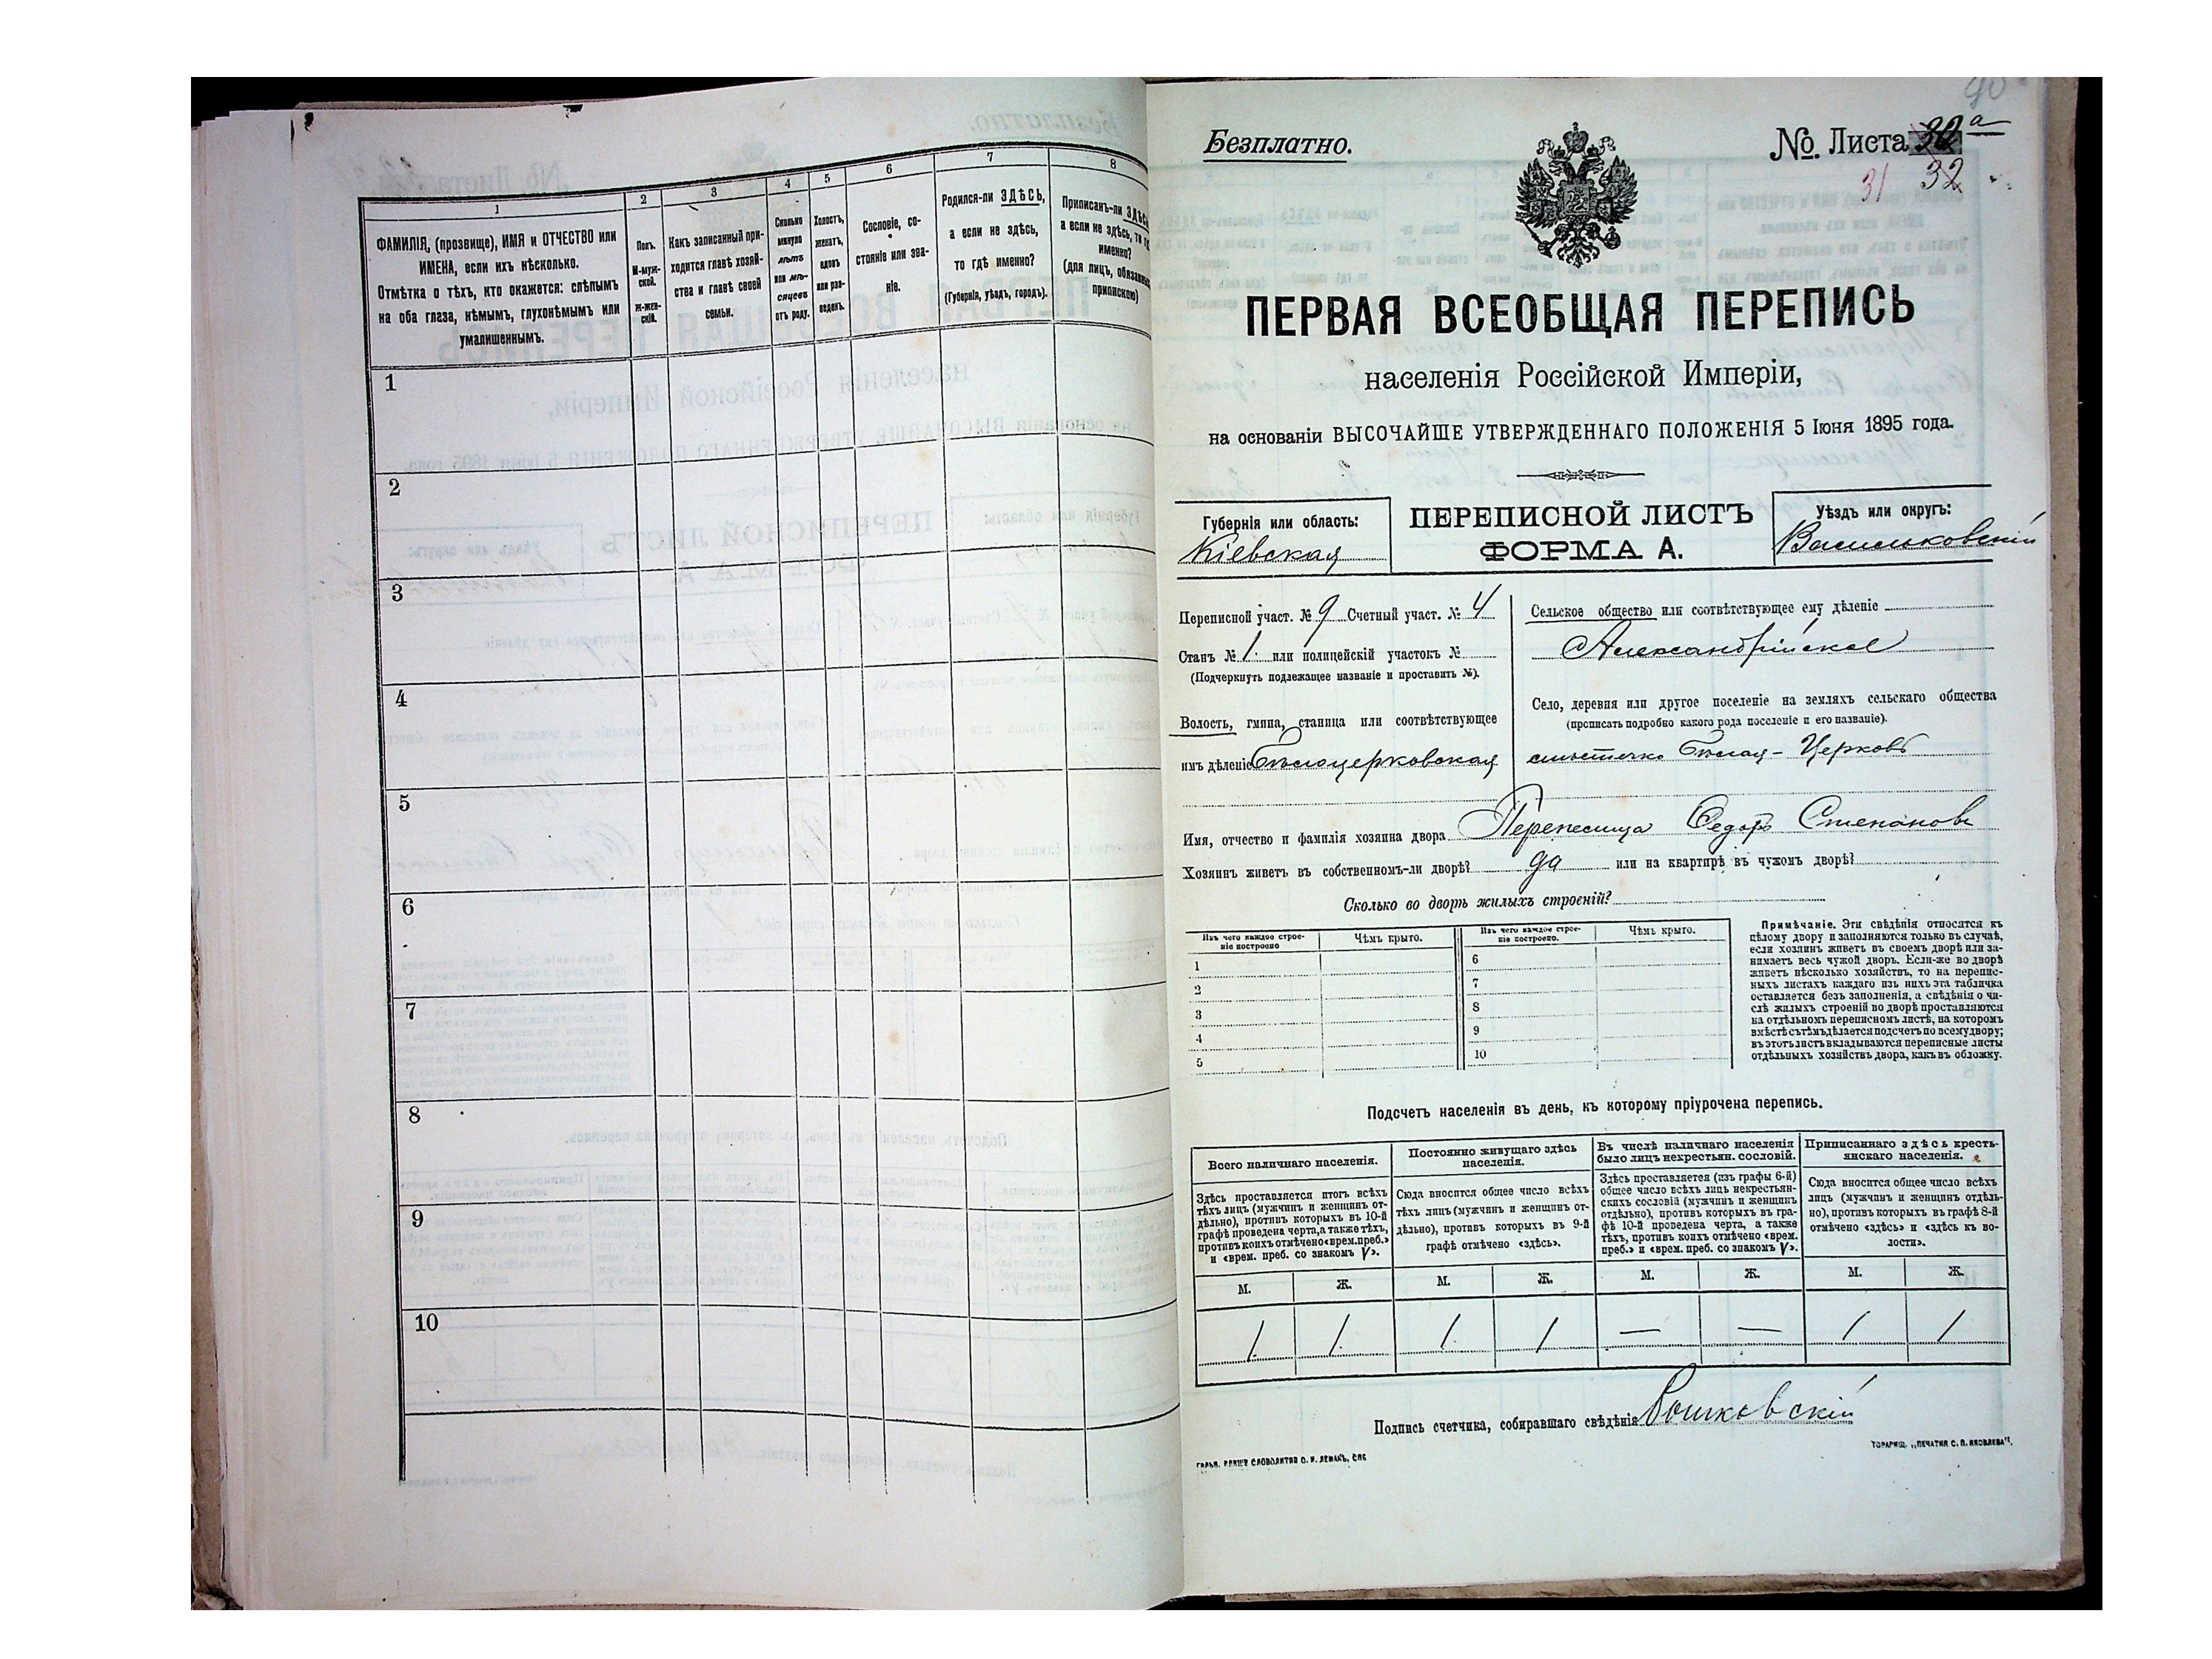 1
2
3
4
5
6
7
8
ФАМИЛІЯ, (прозвище), ИМЯ и ОТЧЕСТВО или
ИМЕНА, если ихъ нѣсколько.
Отмѣтка о тѣхъ, кто окажется: слѣпымъ
на оба глаза, нѣмымъ, глухонѣмымъ или
умалишеннымъ.
Полъ.
М-муж-
ской.
Ж-жен-
скій.
Какъ записанный при-
ходится главѣ хозяй-
ства и главѣ своей
семьи.
Сколько
минуло
лѣтъ
или мѣ-
сяцевъ
отъ роду.
Холостъ,
женатъ,
вдовъ
или раз-
веденъ.
Сословіе, со-
стояніе или зва-
ніе.
Родился-ли ЗДѢСЬ,
а если не здѣсь,
то гдѣ именно?
(Губернія, уѣздъ, городъ).
Приписанъ-ли ЗДѢСЬ
а если не здѣсь, то
именно?
(для лицъ,
припискою)
1
2
3
4
5
6
7
8
9
10
90
Безплатно.
№ Листа а
31 32
ПЕРВАЯ ВСЕОБЩАЯ ПЕРЕПИСЬ
населенія Россійской Имперіи,
на основаніи ВЫСОЧАЙШЕ УТВЕРЖДЕННАГО ПОЛОЖЕНІЯ 5 Іюня 1895 года.
Губернія или область:
Кіевская
ПЕРЕПИСНОЙ ЛИСТЪ
ФОРМА А.
Уѣздъ или округъ:
Васильковскій
Переписной участ. № 9 Счетный участ. № 4
Станъ № 1. или полицейскій участокъ №
(Подчеркнуть подлежащее названіе и проставить №).
Волость, гмина, станица или соотвѣтствующее
имъ дѣленіе Бѣлоцерковская
Сельское общество или соотвѣтствующее ему дѣленіе
Александрійское
Село, деревня или другое поселеніе на земляхъ сельскаго общества
(прописать подробно какого рода поселеніе и его названіе).
мѣстечко Бѣлая-Церковь
Имя, отчество и фамилія хозяина двора Перепелица Ѳедоръ Степановъ
Хозяинъ живетъ въ собственномъ-ли дворѣ? да или на квартирѣ въ чужомъ дворѣ?
Сколько во дворѣ жилыхъ строеній?
Изъ чего каждое строе-
ніе построено
Чѣмъ крыто.
Изъ чего каждое строе-
ніе построено.
Чѣмъ крыто.
1
2
3
4
5
6
7
8
9
10
Примѣчаніе. Эти свѣдѣнія относятся къ
цѣлому двору и заполняются только въ случаѣ,
если хозяинъ живетъ въ своемъ дворѣ или за-
нимаетъ весь чужой дворъ. Если-же во дворѣ
живетъ нѣсколько хозяйствъ, то на перепис-
ныхъ листахъ каждаго изъ нихъ эта табличка
оставляется безъ заполненія, а свѣдѣнія о чи-
слѣ жилыхъ строеній во дворѣ проставляются
на отдѣльномъ переписномъ листѣ, на которомъ
вмѣстѣ съ тѣмъ дѣлается подсчетъ по всему двору;
въ этотъ листъ вкладываются переписные листы
отдѣльныхъ хозяйствъ двора, какъ въ обложку.
Подсчетъ населенія въ день, къ которому пріурочена перепись.
Всего наличнаго населенія.
Здѣсь проставляется итогъ всѣхъ
тѣхъ лицъ (мужчинъ и женщинъ от-
дѣльно), противъ которыхъ въ 10-й
графѣ проведена черта, а также тѣхъ,
противъ коихъ отмѣчено «врем. преб.»
и «врем. преб. со знакомъ V».
Постоянно живущаго здѣсь
населенія.
Сюда вносится общее число всѣхъ
тѣхъ лицъ (мужчинъ и женщинъ от-
дѣльно), противъ которыхъ въ 9-й
графѣ отмѣчено «здѣсь».
Въ числѣ наличнаго населенія
было лицъ некрестьян. сословій.
Здѣсь проставляется (изъ графы 6-й)
общее число всѣхъ лицъ некрестьян-
скихъ сословій (мужчинъ и женщинъ
отдѣльно), противъ которыхъ въ гра-
фѣ 10-й проведена черта, а также
тѣхъ, противъ коихъ отмѣчено «врем.
преб.» и «врем. преб. со знакомъ V».
Приписаннаго здѣсь кресть-
янскаго населенія.
Сюда вносится общее число всѣхъ
лицъ (мужчинъ и женщинъ отдѣль-
но), противъ которыхъ въ графѣ 8-й
отмѣчено «здѣсь» и «здѣсь къ во-
лости».
М. Ж. М. Ж. М. Ж. М. Ж.
1. 1. 1. 1 — — 1 1
Подпись счетчика, собиравшаго свѣдѣнія
ТОВАРИЩ. „ПЕЧАТНЯ С. П. ЯКОВЛЕВА".